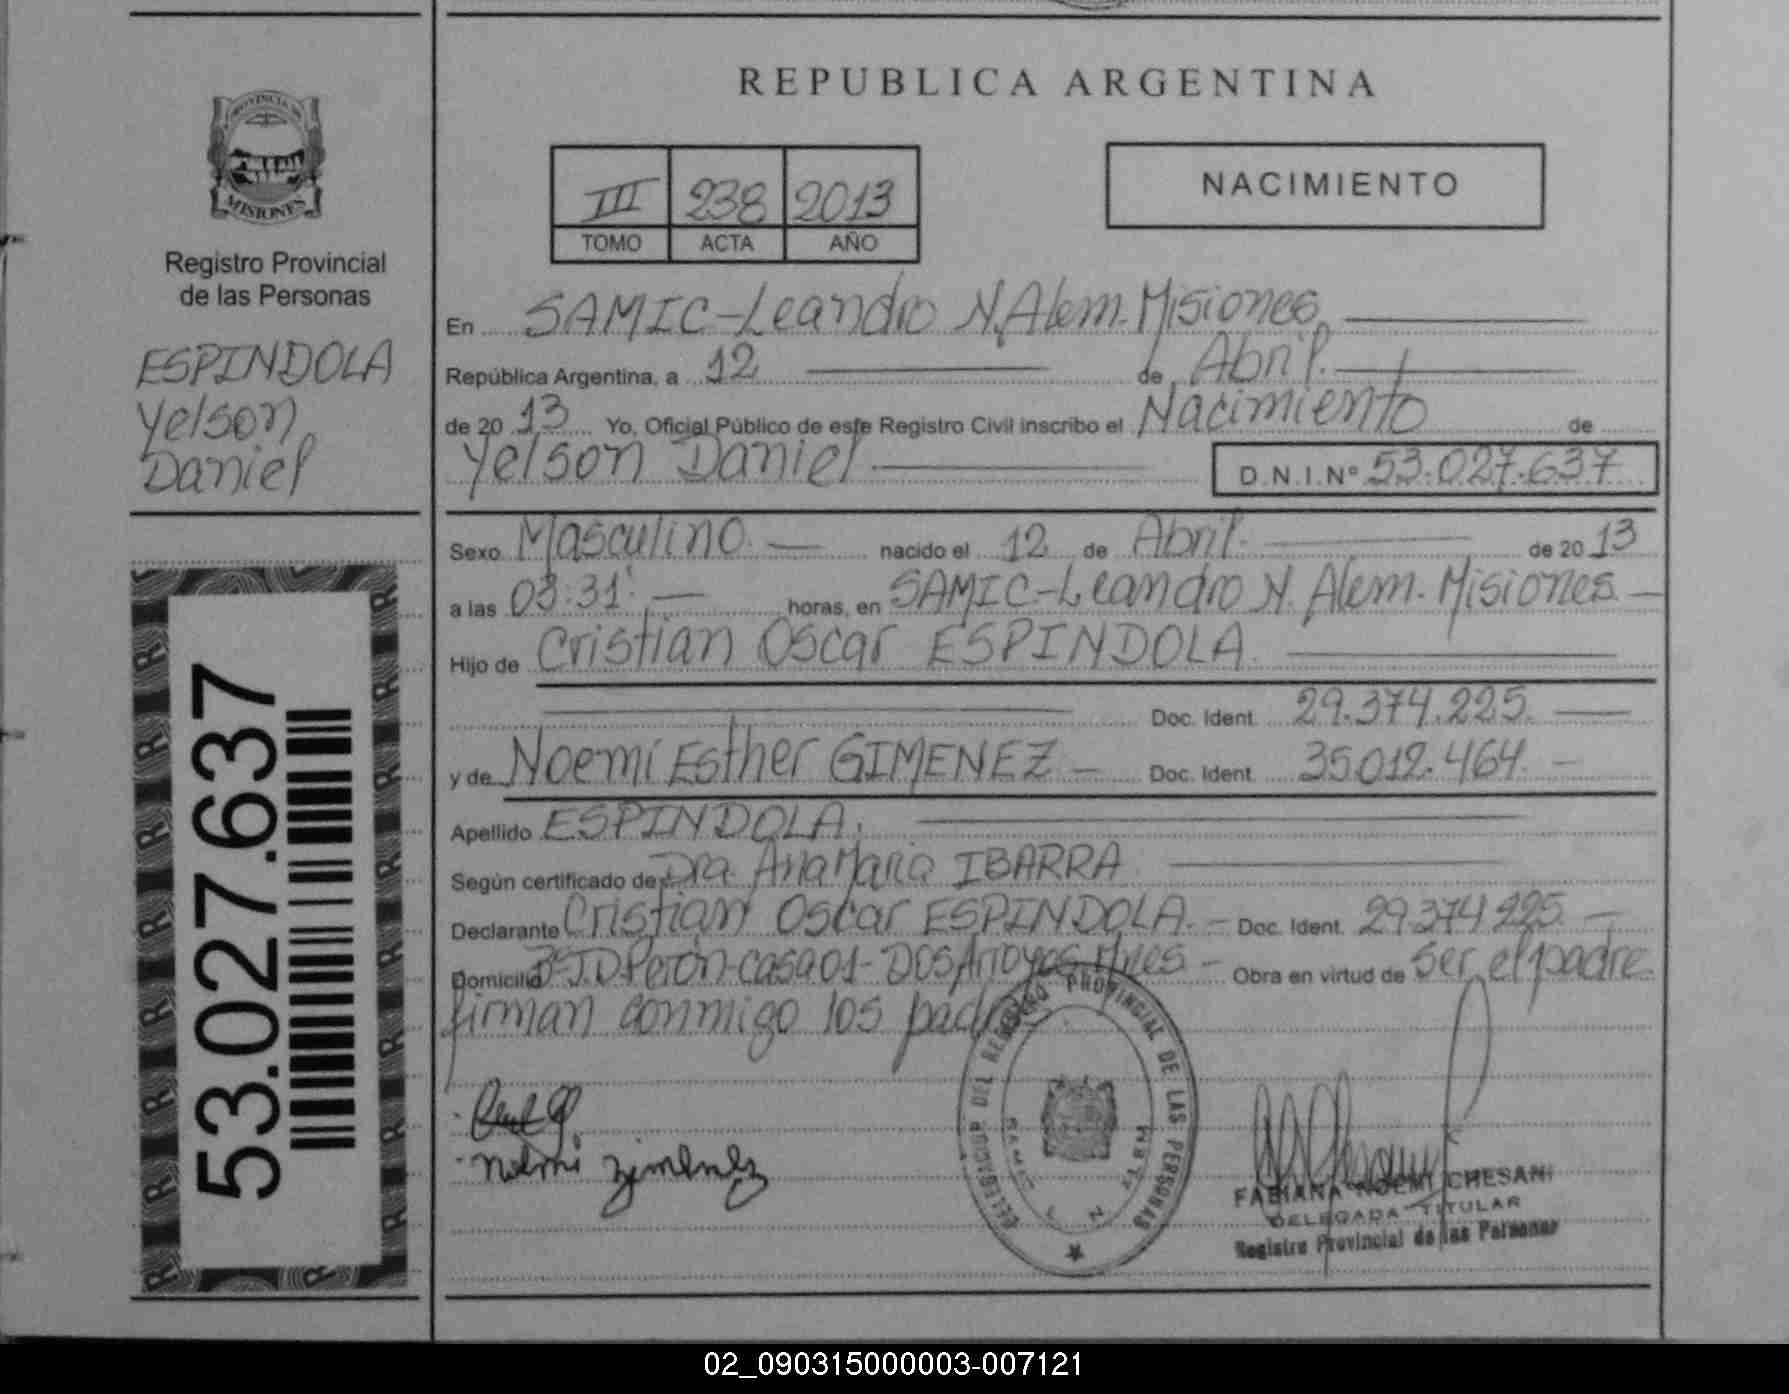 REPUBLICA ARGENTINA
PROVINCIA DE
MISIONES
Registro Provincial
de las Personas
ESPINDOLA
Yelson
Daniel
53.027.637
III 238 2013
TOMO ACTA AÑO
NACIMIENTO
En SAMIC-Leandro N. Alem. Misiones
República Argentina, a 12 de Abril.
de 20 13 Yo, Oficial Público de este Registro Civil inscribo el Nacimiento de
Yelson Daniel D.N.I.Nº 53.027.637
Sexo Masculino. nacido el 12 de Abril. de 20 13
a las 03:31. horas, en SAMIC-Leandro N. Alem. Misiones.
Hijo de Cristian Oscar ESPINDOLA.
Doc. Ident. 29.374.225.
y de Noemí Esther GIMENEZ Doc. Ident. 35.012.464.
Apellido ESPINDOLA.
Según certificado de Dra. Ana Maria IBARRA
Declarante Cristian Oscar ESPINDOLA. Doc. Ident. 29.374.225.
Domicilio Bº J.D.Perón-casa 01-Dos Arroyos. Mnes Obra en virtud de ser el padre.
firman conmigo los padres
noemi ximenez
DELEGACION DEL REGISTRO PROVINCIAL DE LAS PERSONAS
SAMIC
FABIANA NOEMI CHESANI
DELEGADA TITULAR
Registro Provincial de las Personas
02_090315000003-007121